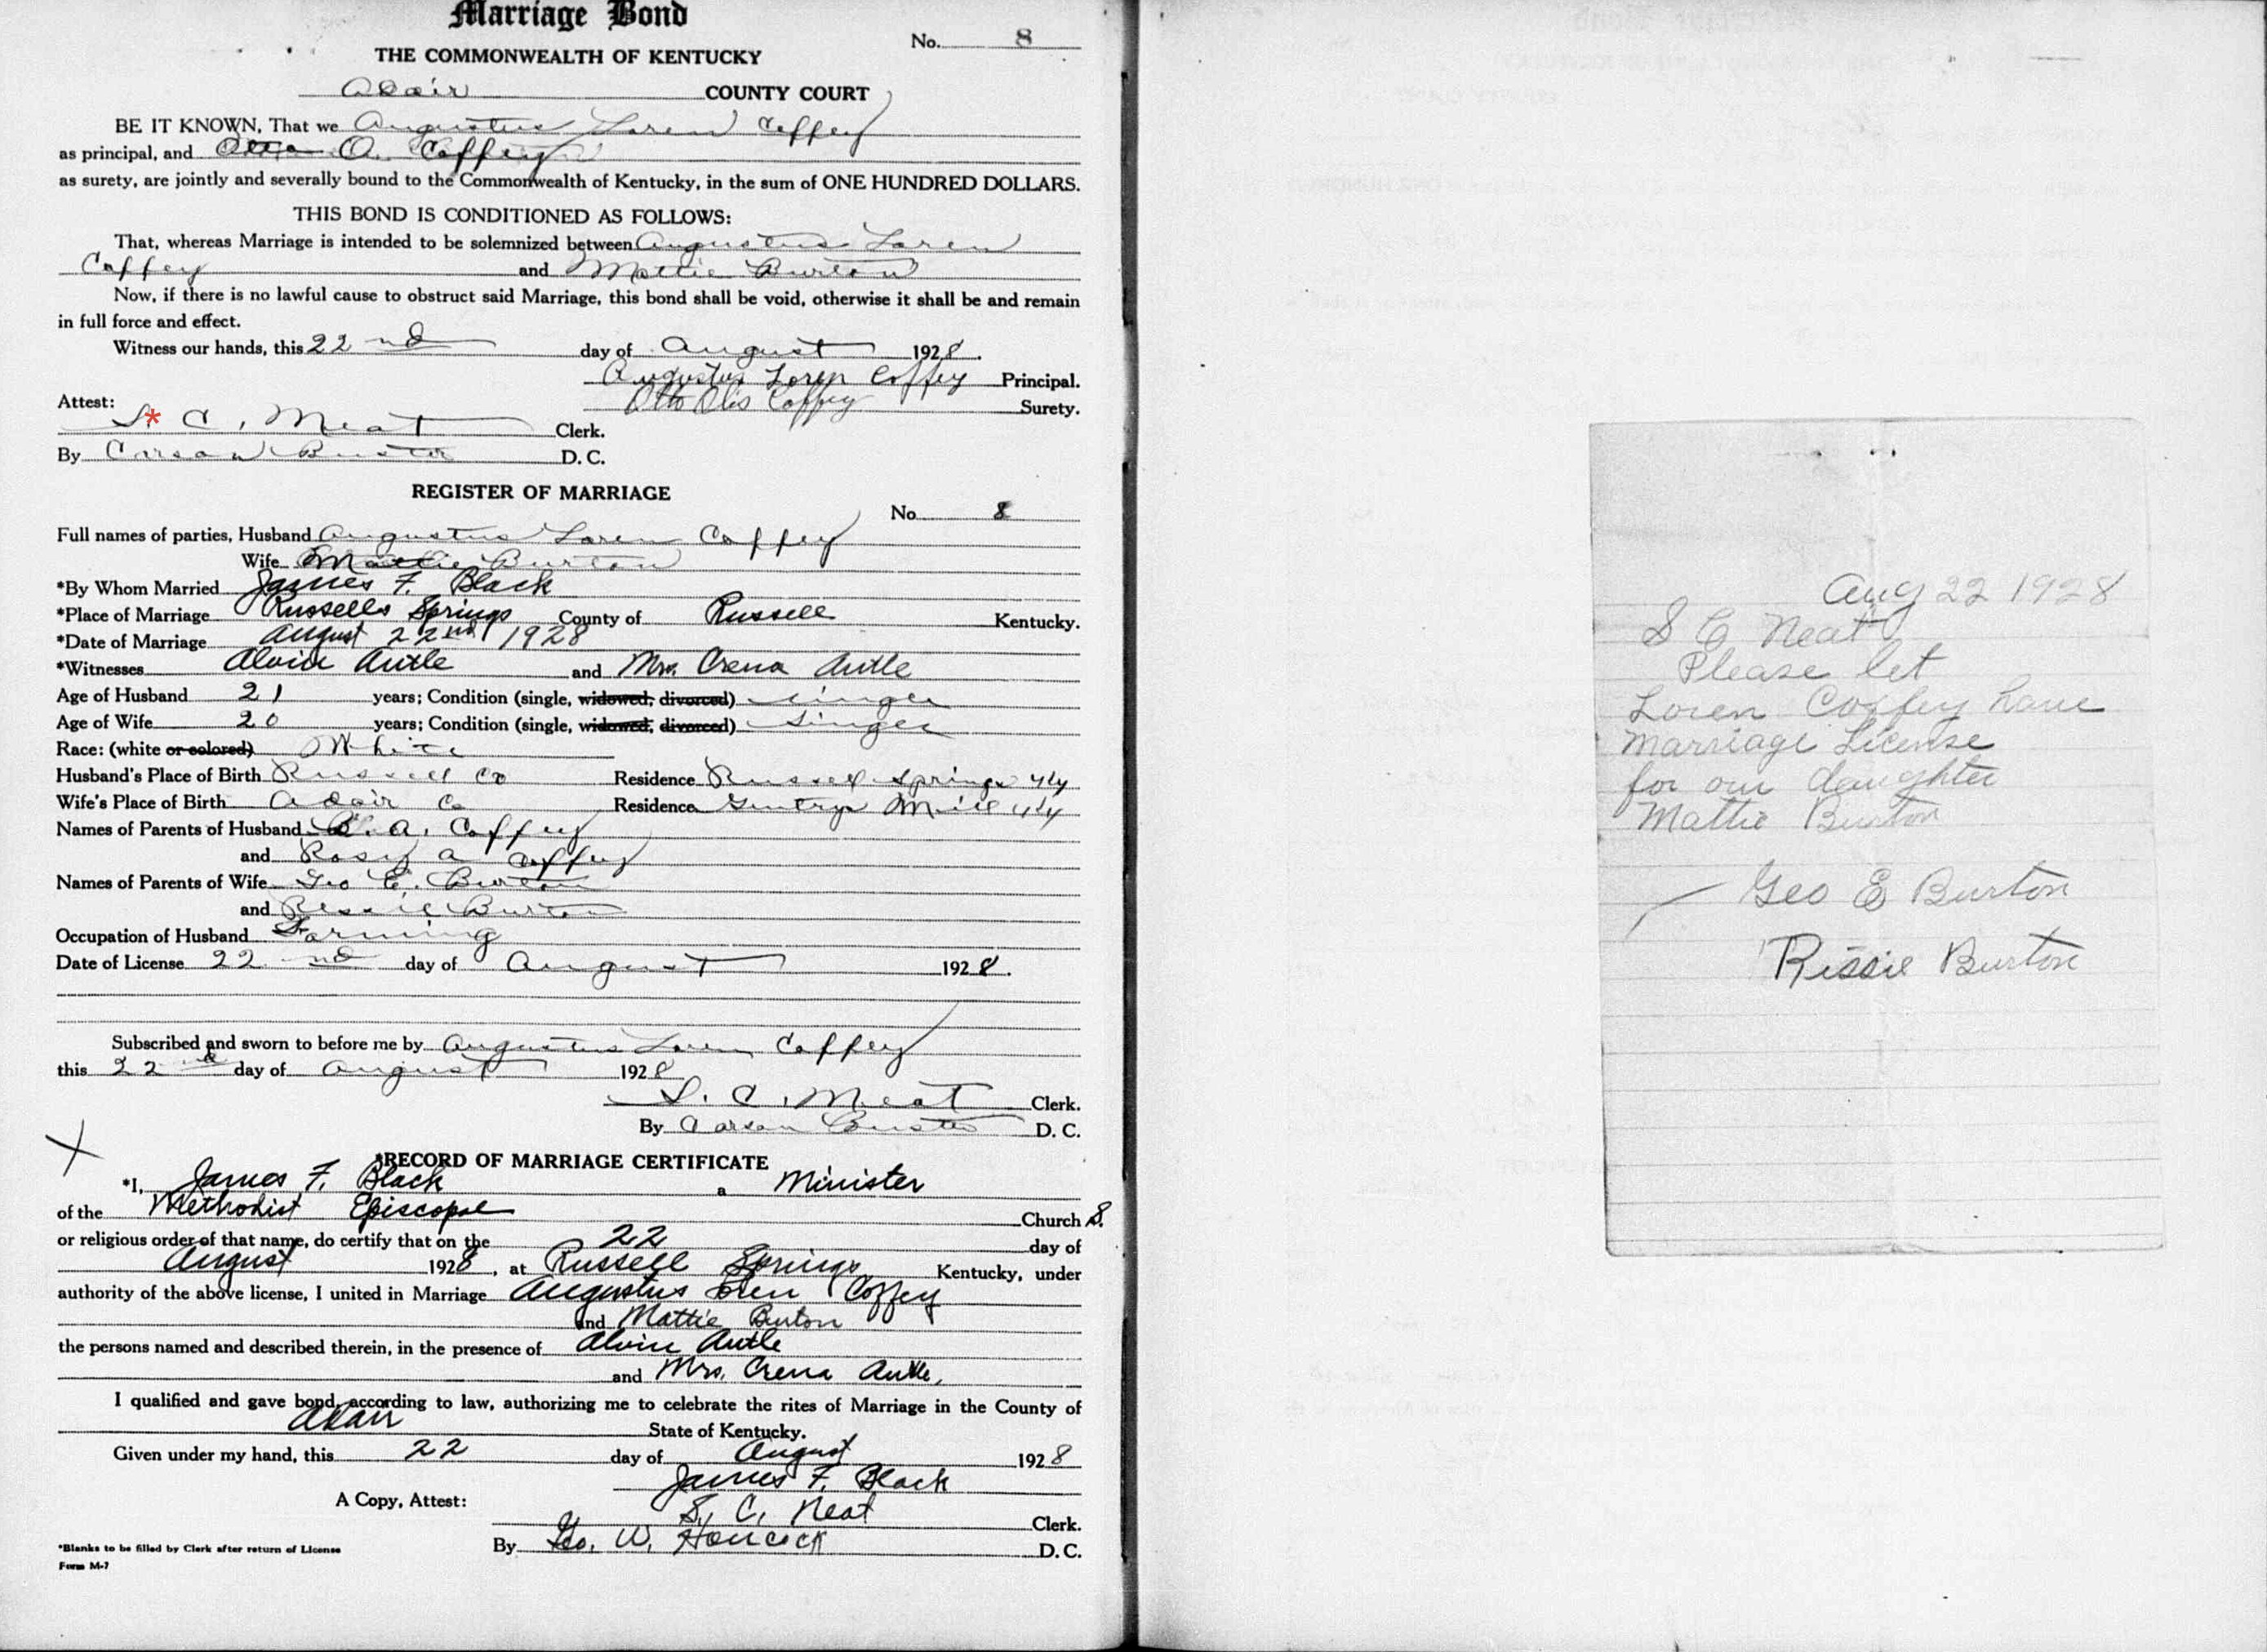 Marriage Bond
No. 8
THE COMMONWEALTH OF KENTUCKY
Adair COUNTY COURT
BE IT KNOWN, That we Augustus Loren Coffey
as principal, and O. Coffey
as surety, are jointly and severally bound to the Commonwealth of Kentucky, in the sum of ONE HUNDRED DOLLARS.
THIS BOND IS CONDITIONED AS FOLLOWS:
That, whereas Marriage is intended to be solemnized between Augustus Loren
Coffey and Mattie Burton
Now, if there is no lawful cause to obstruct said Marriage, this bond shall be void, otherwise it shall be and remain
in full force and effect.
Witness our hands, this 22nd day of August 1928.
Augustus Loren Coffey Principal.
Otto Otis Coffey Surety.
Attest:
S. C. Neat Clerk.
By Carson D. C.
REGISTER OF MARRIAGE
No 8
Full names of parties, Husband Augustus Loren Coffey
Wife Mattie Burton
*By Whom Married James F. Black
*Place of Marriage Russells Springs County of Russell Kentucky.
*Date of Marriage August 22nd 1928
*Witnesses Alvin Antle and Mrs. Crena Antle
Age of Husband 21 years; Condition (single, widowed, divorced) Single
Age of Wife 20 years; Condition (single, widowed, divorced) Single
Race: (white or colored) White
Husband's Place of Birth Russell Co Residence Russell Springs Ky
Wife's Place of Birth Adair Co Residence Gentrys Mill Ky
Names of Parents of Husband A. Coffey
and Rosy a Coffey
Names of Parents of Wife Geo E. Burton
and Ressie Burton
Occupation of Husband Farming
Date of License 22nd day of August 1928.
Subscribed and sworn to before me by Augustus Loren Coffey
this 22nd day of August 1928
S. C. Neat Clerk.
By Carson D. C.
*RECORD OF MARRIAGE CERTIFICATE
*I, James F. Black a Minister
of the Methodist Episcopal Church S.
or religious order of that name, do certify that on the 22 day of
August 1928, at Russell Springs Kentucky, under
authority of the above license, I united in Marriage Augustus Loren Coffey
and Mattie Burton
the persons named and described therein, in the presence of Alvin Antle
and Mrs. Crena Antle,
I qualified and gave bond, according to law, authorizing me to celebrate the rites of Marriage in the County of
Adair State of Kentucky.
Given under my hand, this 22 day of August 1928
James F. Black
A Copy, Attest:
S. C. Neat Clerk.
By Geo. W. Hancock D. C.
*Blanks to be filled by Clerk after return of License
Form M-7
Aug 22 1928
S C Neat
Please let
Loren Coffey have
Marriage License
for our daughter
Mattie Burton
Geo E Burton
Rissie Burton